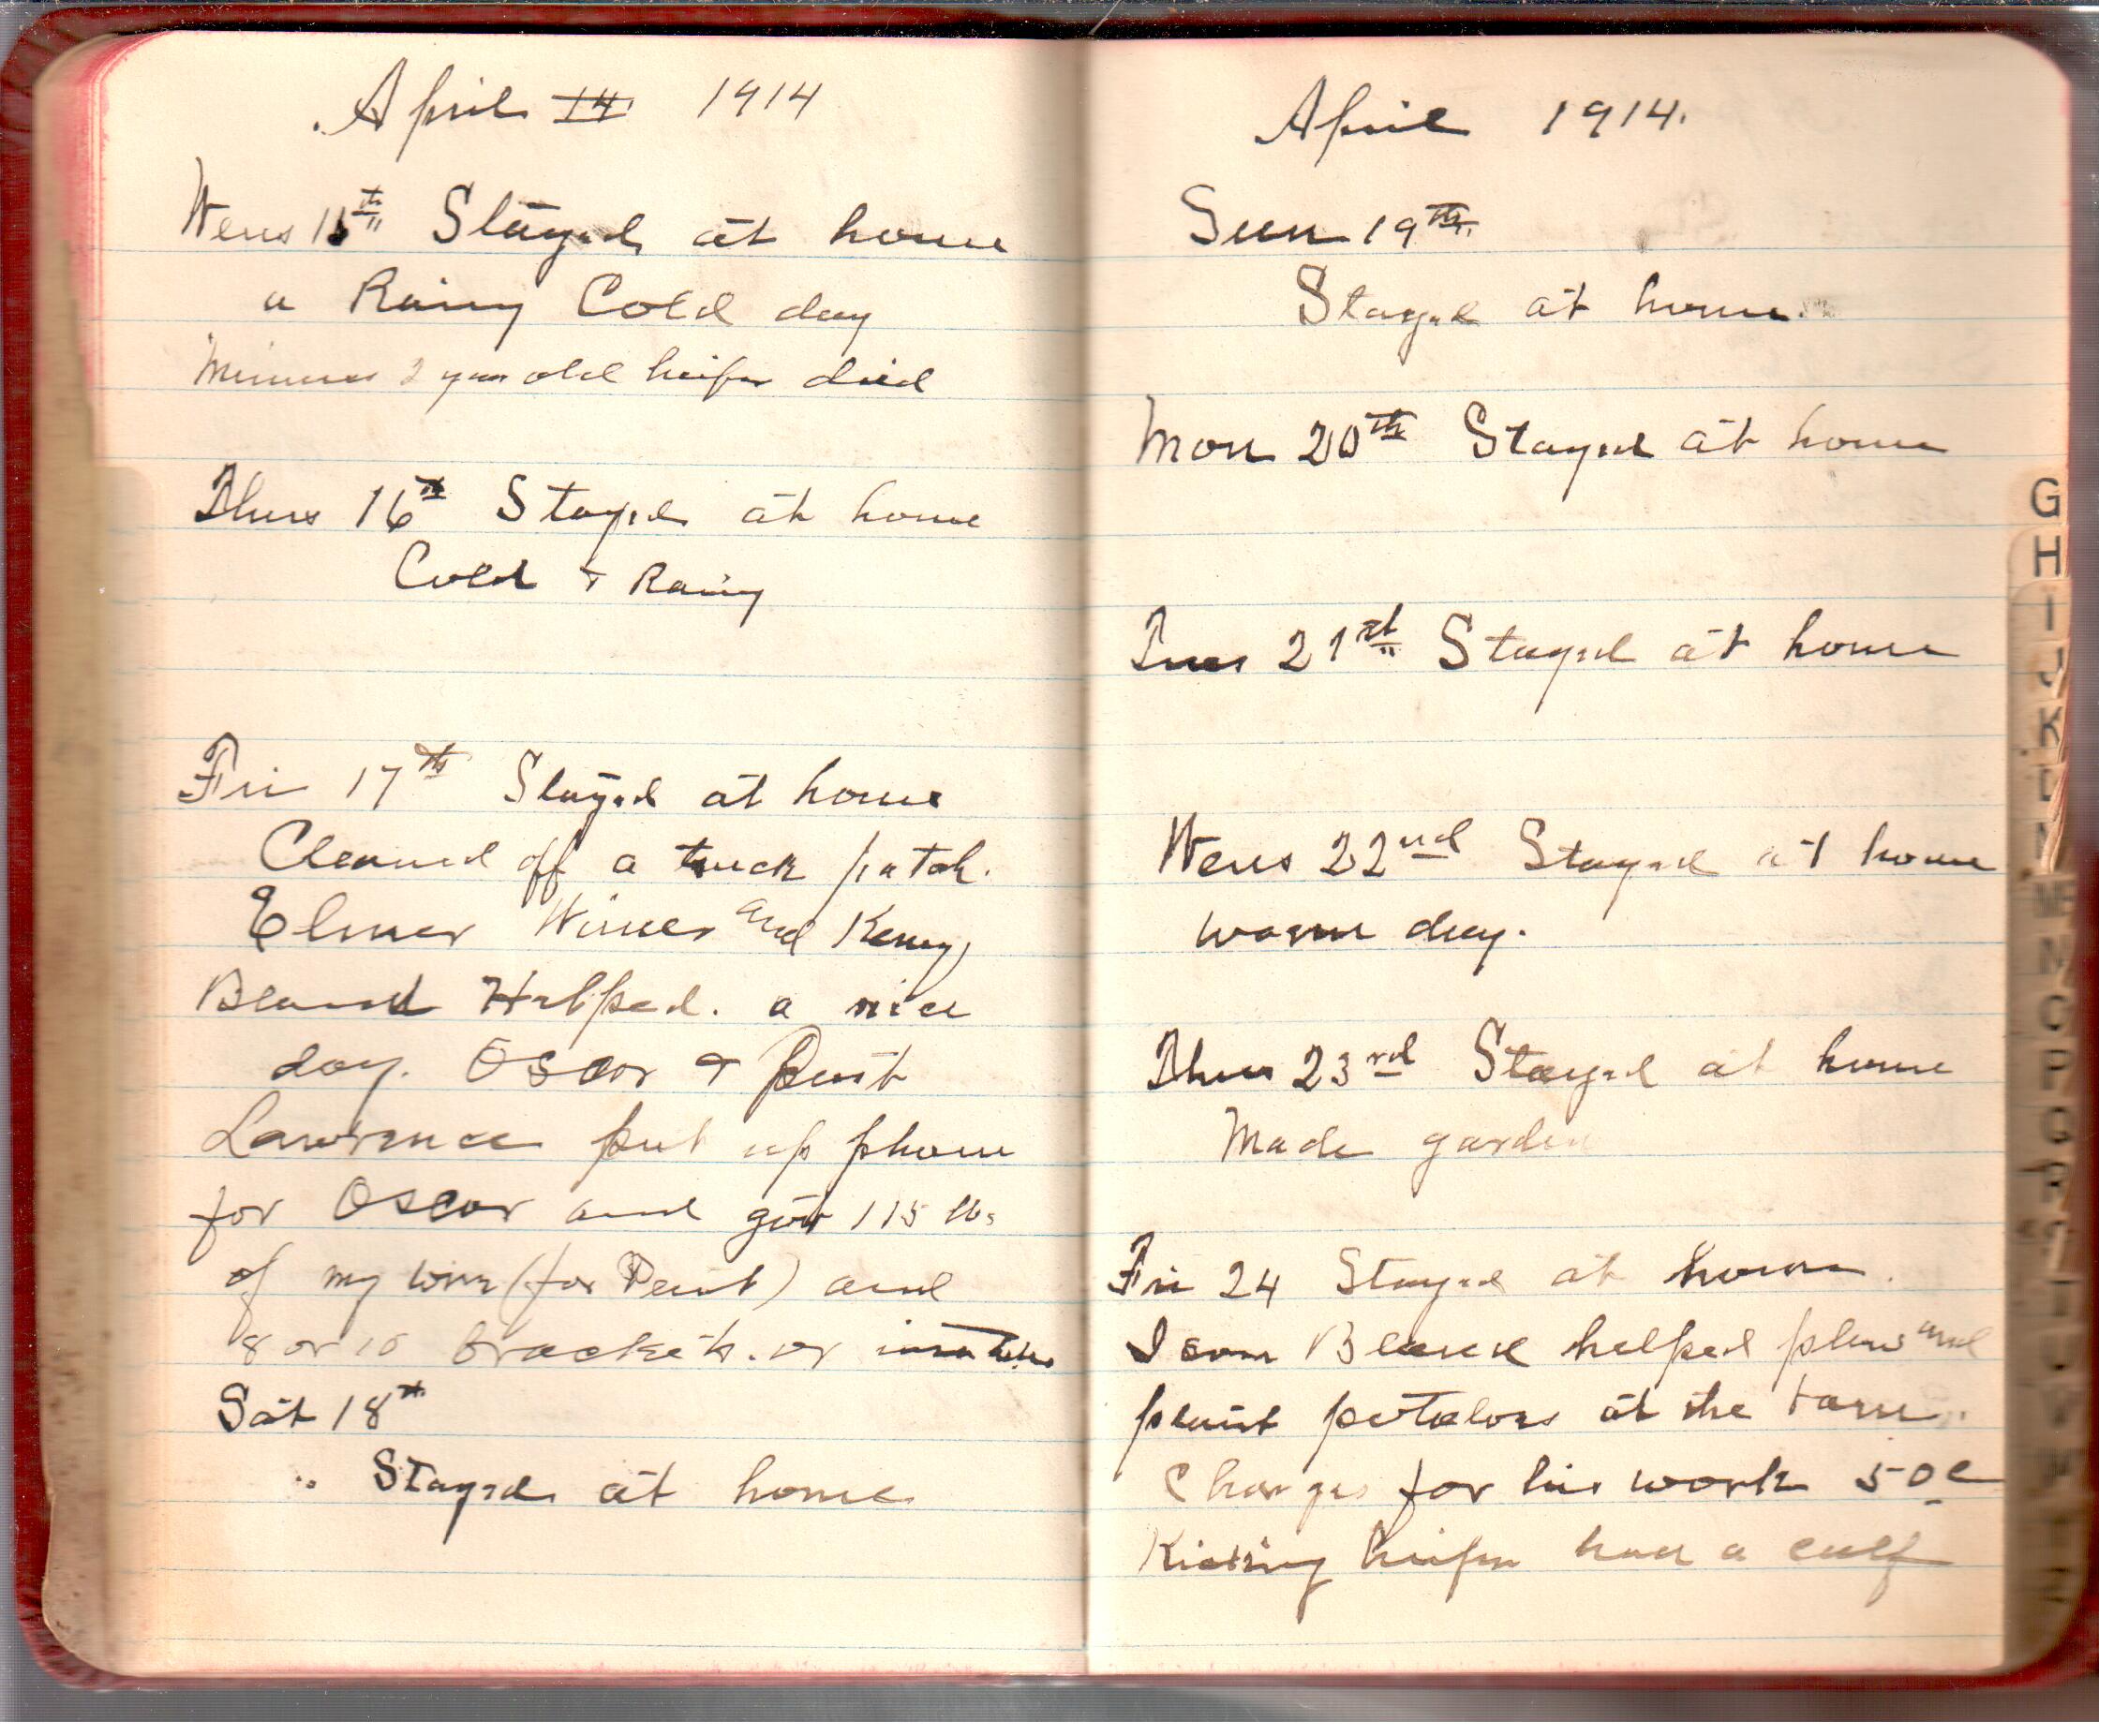 April 14 1914
Wens 15th Stayed at home
a Rainy Cold day
2 year old heifer died
Thurs 16th Stayed at home
Cold + Rainy
Fri 17th Stayed at home
Cleaned off a truck patch.
Elmer and
Helped. a nice
day. Oscar +
Lawrence put up phone
for Oscar and got 115 lbs
of my wire (for ) and
8 or 10 brackets. or
Sat 18th
.. Stayed at home
April 1914.
Sun 19th
Stayed at home.
Mon 20th Stayed at home
Tues 21st Stayed at home
Wens 22nd Stayed at home
warm day.
Thur 23rd Stayed at home
Made garden
Fri 24 Stayed at home.
helped plow and
plant potatoes at the
Charges for his work 50c
Kicking heifer had a calf
G
H
I
J
K
L
N
O
P
Q
R